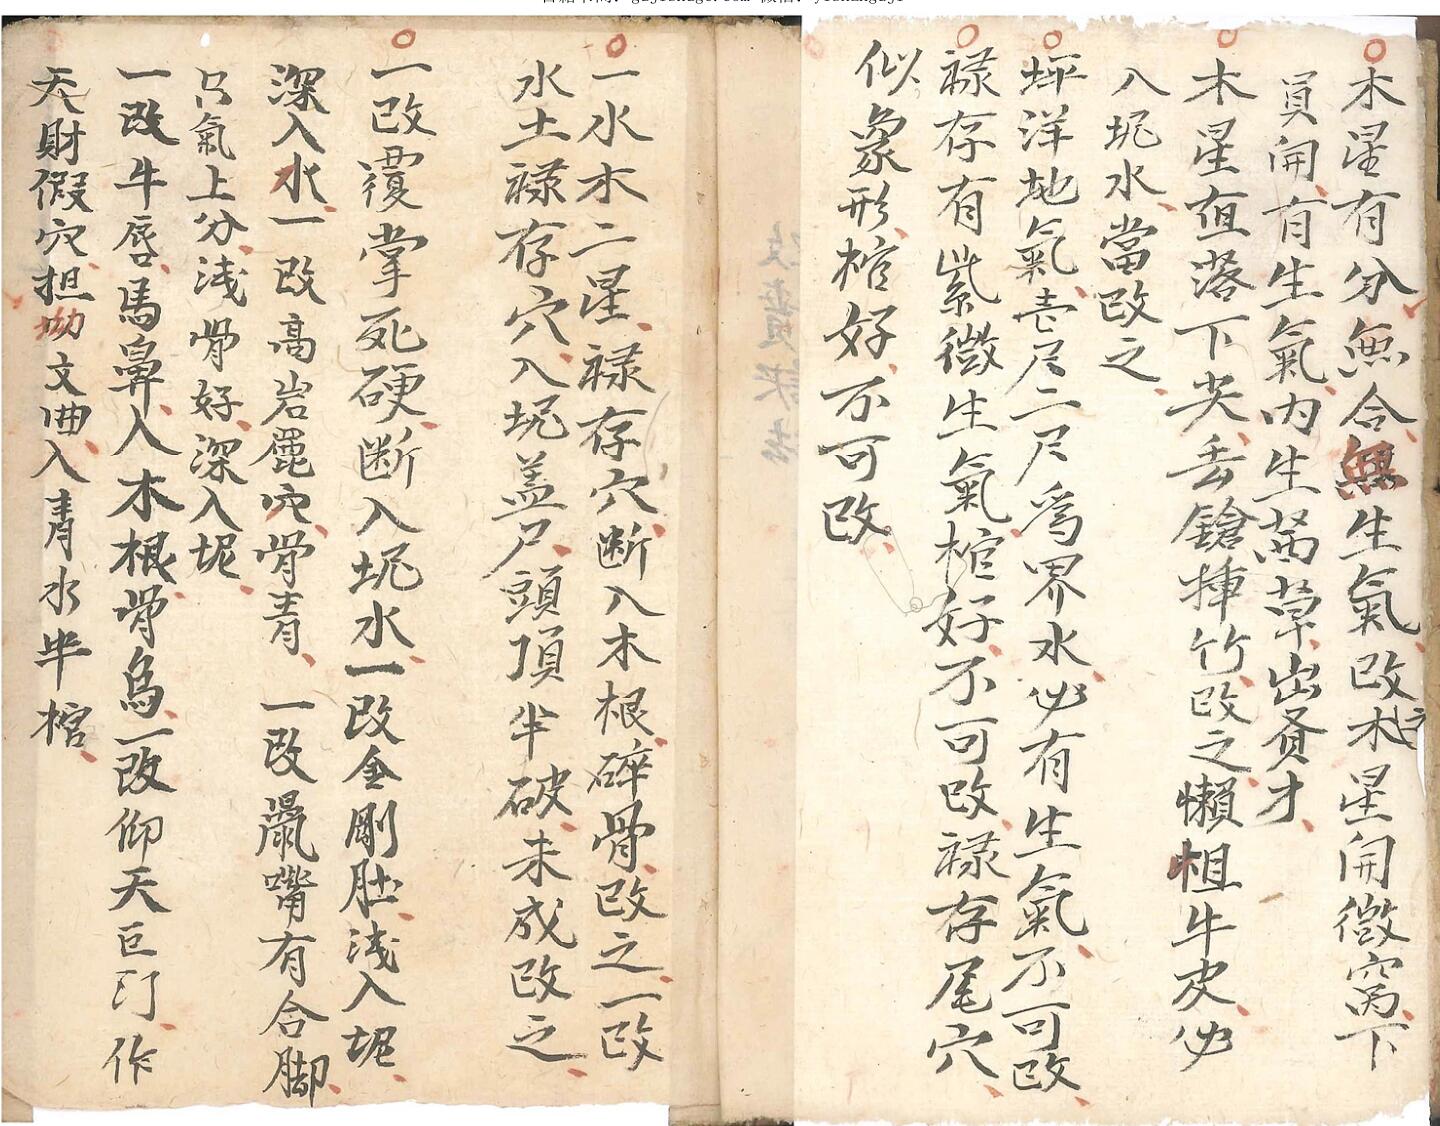 木星有分無合無生氣改木星開微窩下
員開有生氣內生萵草出賢才
木星直落下尖丢鎗揷竹改之懶牛皮必
入坭水當改之
坪洋地氣壹尺二尺爲界水必有生氣不可改
禄存有紫微生氣棺好不可改禄存尾穴
似象形棺好不可改
一水木二星禄存穴断入木根碎骨改之一改
水土禄存穴入坭盖尸頭頂半破未成改之
一改覆掌死硬断入坭水一改金剛肚浅入坭
深入水一改高岩穴骨青一改嘴有合脚
只氣上分浅骨好深入坭
一改牛唇馬鼻入木根骨烏一改仰天巨門作
天財假穴担拗文曲入青水半棺